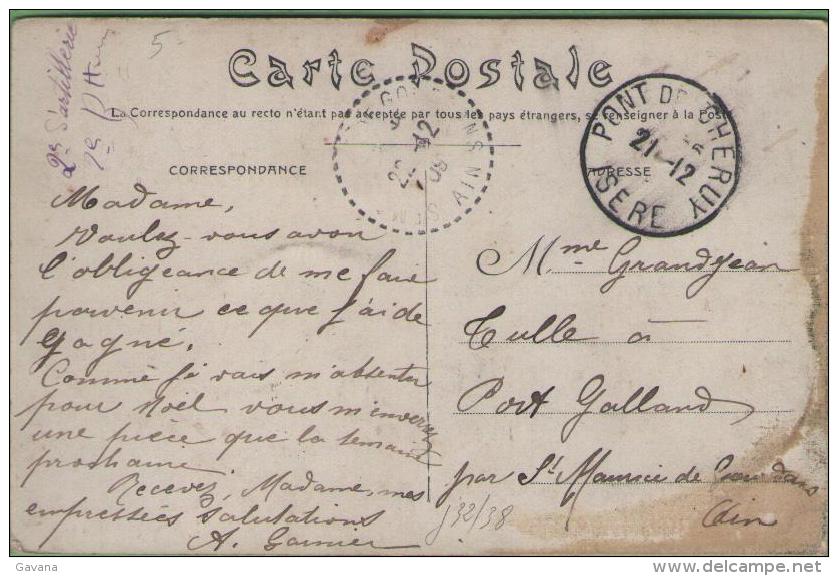 Carte Postale
La Correspondance au recto n'étant pas acceptée par tous les pays étrangers, se renseigner à la Poste
CORRESPONDANCE
ADRESSE
PONT DE CHERUY
21-12
ISERE
22-12
09
AIN
5
Madame,
Voulez-vous avoir
l'obligeance de me faire
parvenir ce que j'ai de
gagné.
Comme je vais m'absenter
pour Noël vous m'enverrez
une pièce que la semaine
prochaine
Recevez, Madame, mes
empressées salutations
A. Garnier
Mme Grandjean
Tulle à
Port Galland
par St Maurice de Gourdans
Ain
j32/38
Gavana
delcampe.net